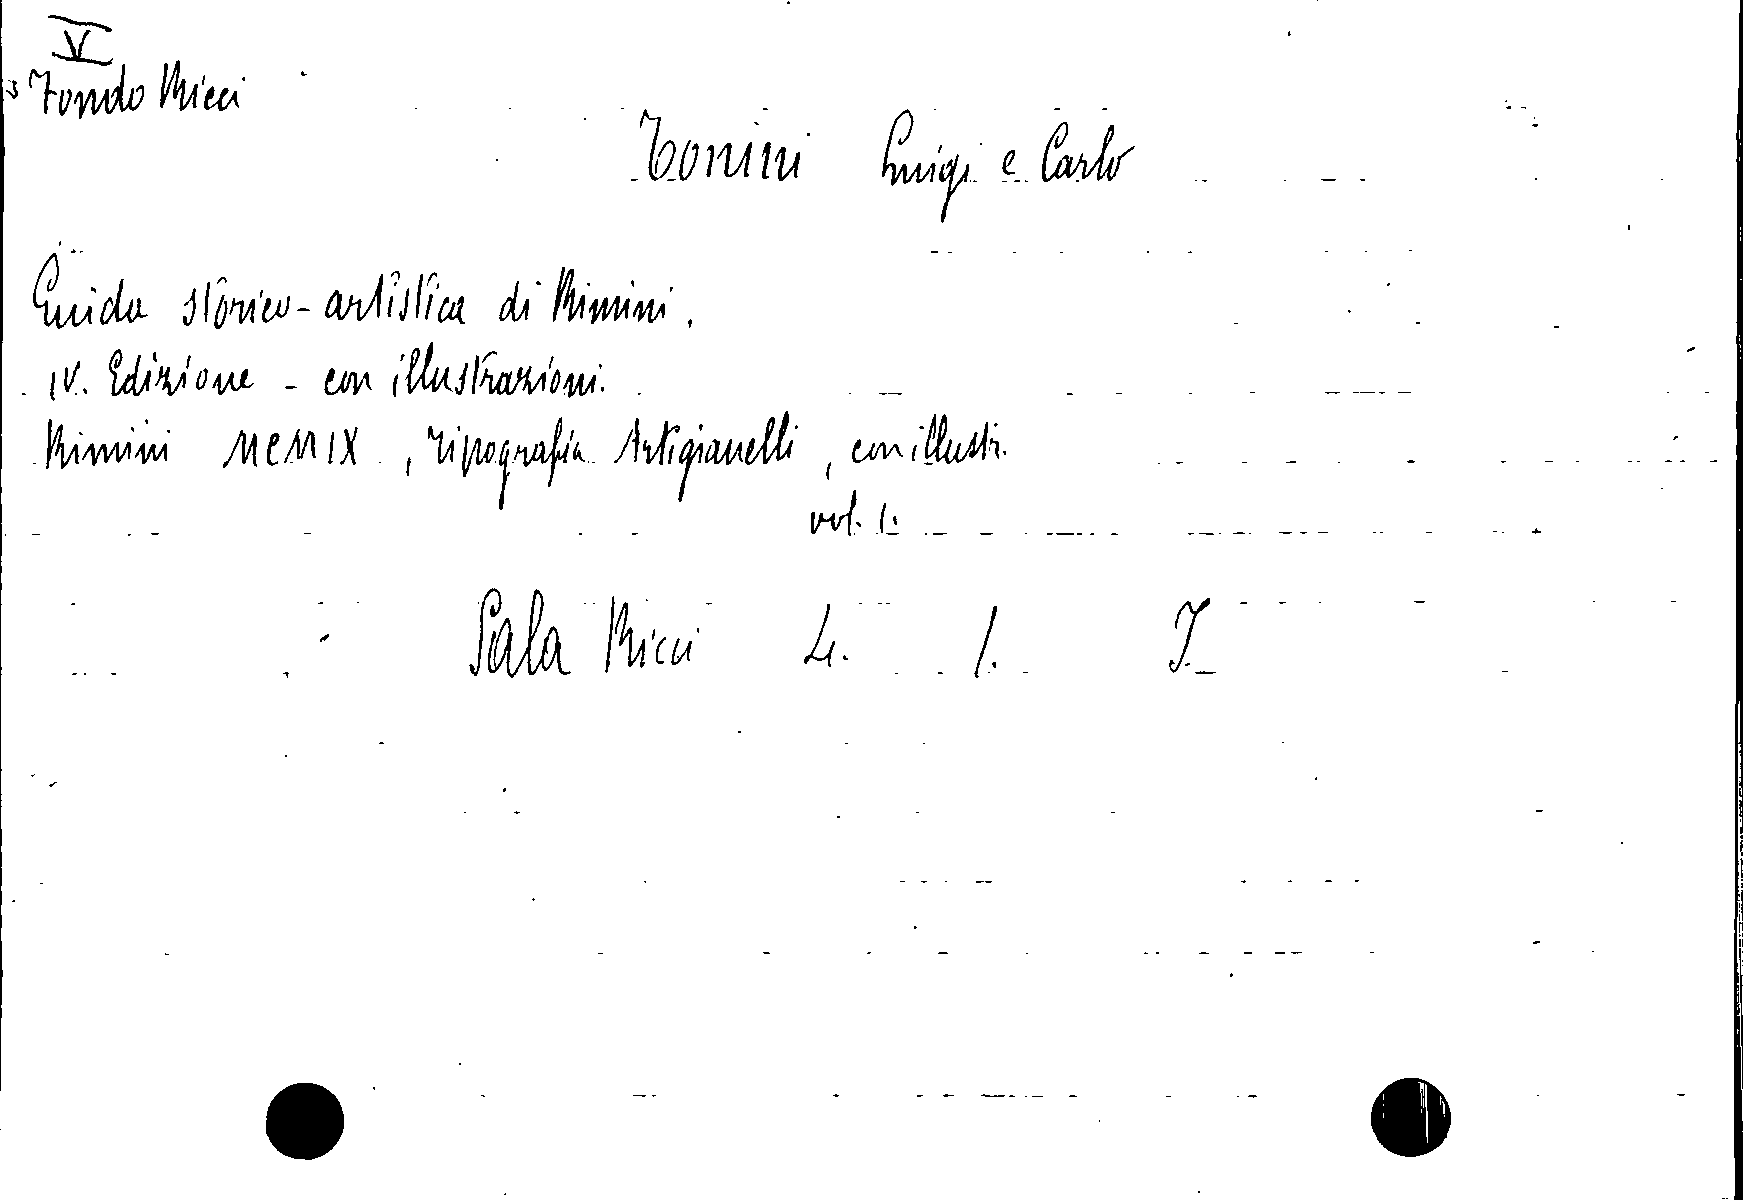 V
Fondo Ricci
Tonini Luigi e Carlo
Guida storico-artistica di Rimini.
IV. Edizione - con illustrazioni.
Rimini MCMIX, Tipografia Artigianelli, con illustr.
vol. 1.
Sala Ricci 4. 1. I